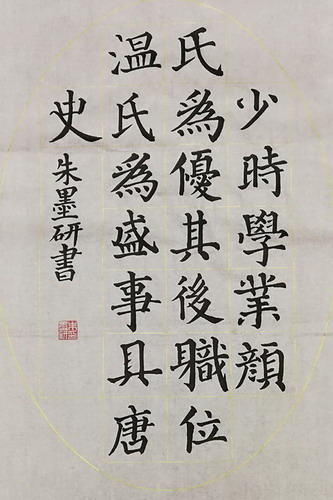 少時學業顔
氏爲優其後職位
温氏爲盛事具唐
史
朱墨研書